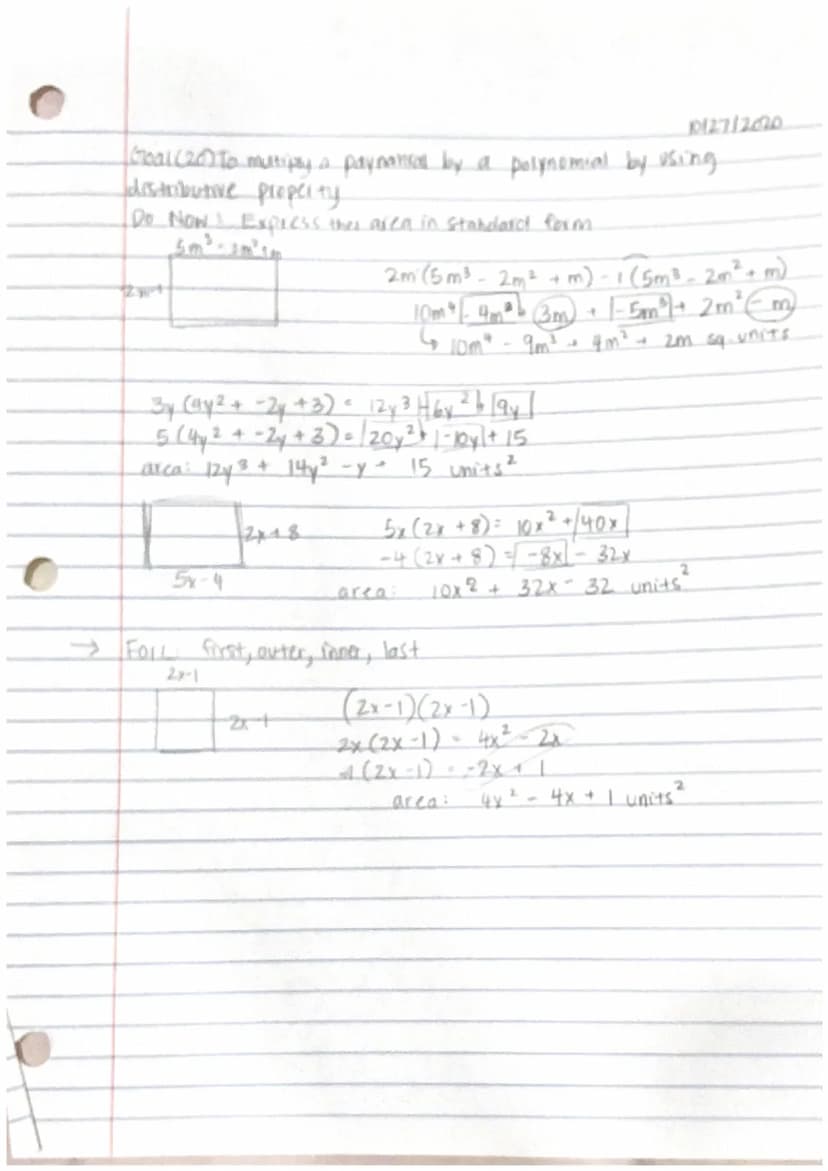 10/27/2020
Goal (20) To multiply a polynomial by a polynomial by using
distributive property
Do Now: Express the area in standard form
5m³ - 2m² + m
2m-1
2m(5m³ - 2m² + m) - 1(5m³ - 2m² + m)
10m⁴ - 4m³ + 3m + -5m³ + 2m² - m
↳ 10m⁴ - 9m³ + 4m² + 2m sq. units
3y(4y² + -2y + 3) = 12y³ + -6y² + 9y
5(4y² + -2y + 3) = 20y² + -10y + 15
area: 12y³ + 14y² - y + 15 units²
2x+8
5x-4
5x(2x + 8) = 10x² + 40x
-4(2x + 8) = -8x - 32x
area: 10x² + 32x - 32 units²
→ FOIL: first, outer, inner, last
2x-1
2x-1
(2x-1)(2x-1)
2x(2x-1) = 4x² - 2x
-1(2x-1) = -2x + 1
area: 4x² - 4x + 1 units²